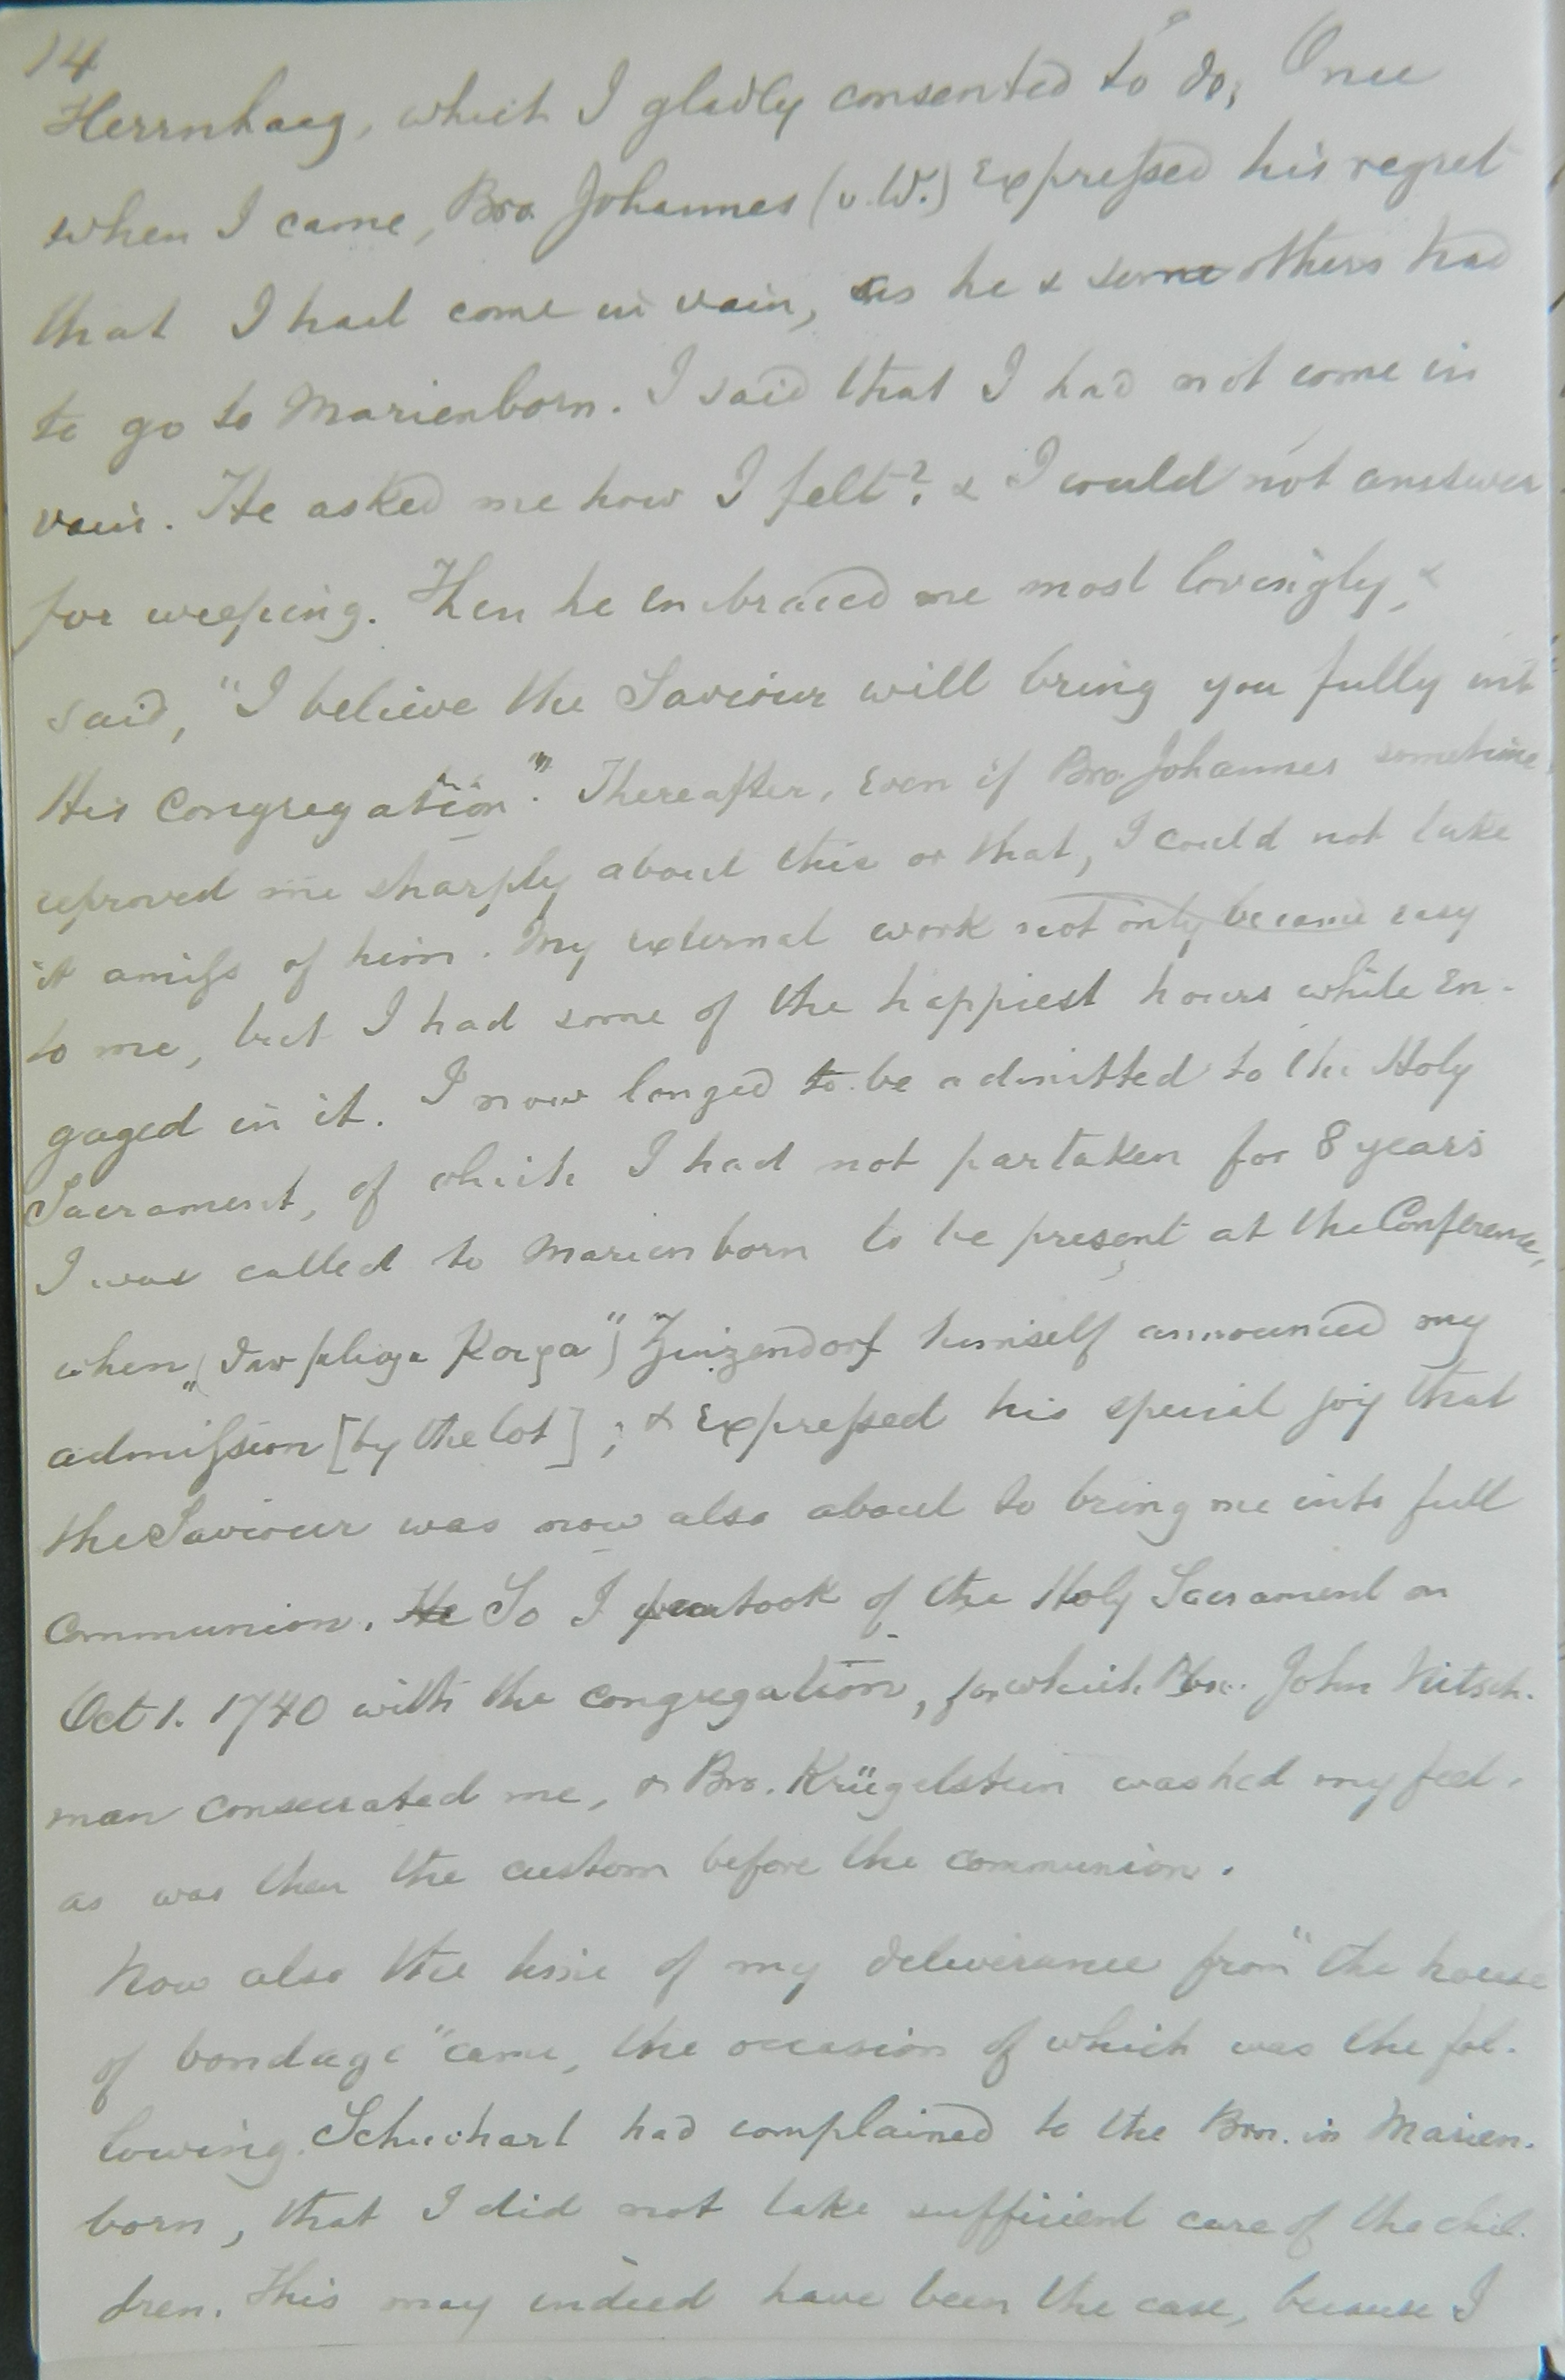 14
Herrnhaag, which I gladly consented to do, Once
when I came, Bro. Johannes (v. W.) expressed his regret
that I had come in vain, as he & some others had
to go to Marienborn. I said that I had not come in
vain. He asked me how I felt? & I could not answer
for weeping. Then he embraced me most lovingly, &
said, "I believe the Saviour will bring you fully int
His Congregation". Thereafter, even if Bro. Johannes sometime
reproved me sharply about this or that, I could not take
it amiss of him. My external work not only became easy
to me, but I had some of the happiest hours while en-
gaged in it. I now longed to be admitted to the Holy
Sacrament, of which I had not partaken for 8 years
I was called to Marienborn to be present at the Conference,
when Zinzendorf himself announced my
admission [by the lot]; & expressed his special joy that
the Saviour was now also about to bring me into full
Communion. He So I partook of the Holy Sacrament on
Oct 1. 1740 with the congregation, for which Bro. John Nitsch-
man consecrated me, & Bro. Krügelstein washed my feet,
as was then the custom before the communion.
Now also the time of my deliverance from "the house
of bondage" came, the occasion of which was the fol-
lowing. Schuchart had complained to the Brn. in Marien-
born, that I did not take sufficient care of the chil-
dren. This may indeed have been the case, because I